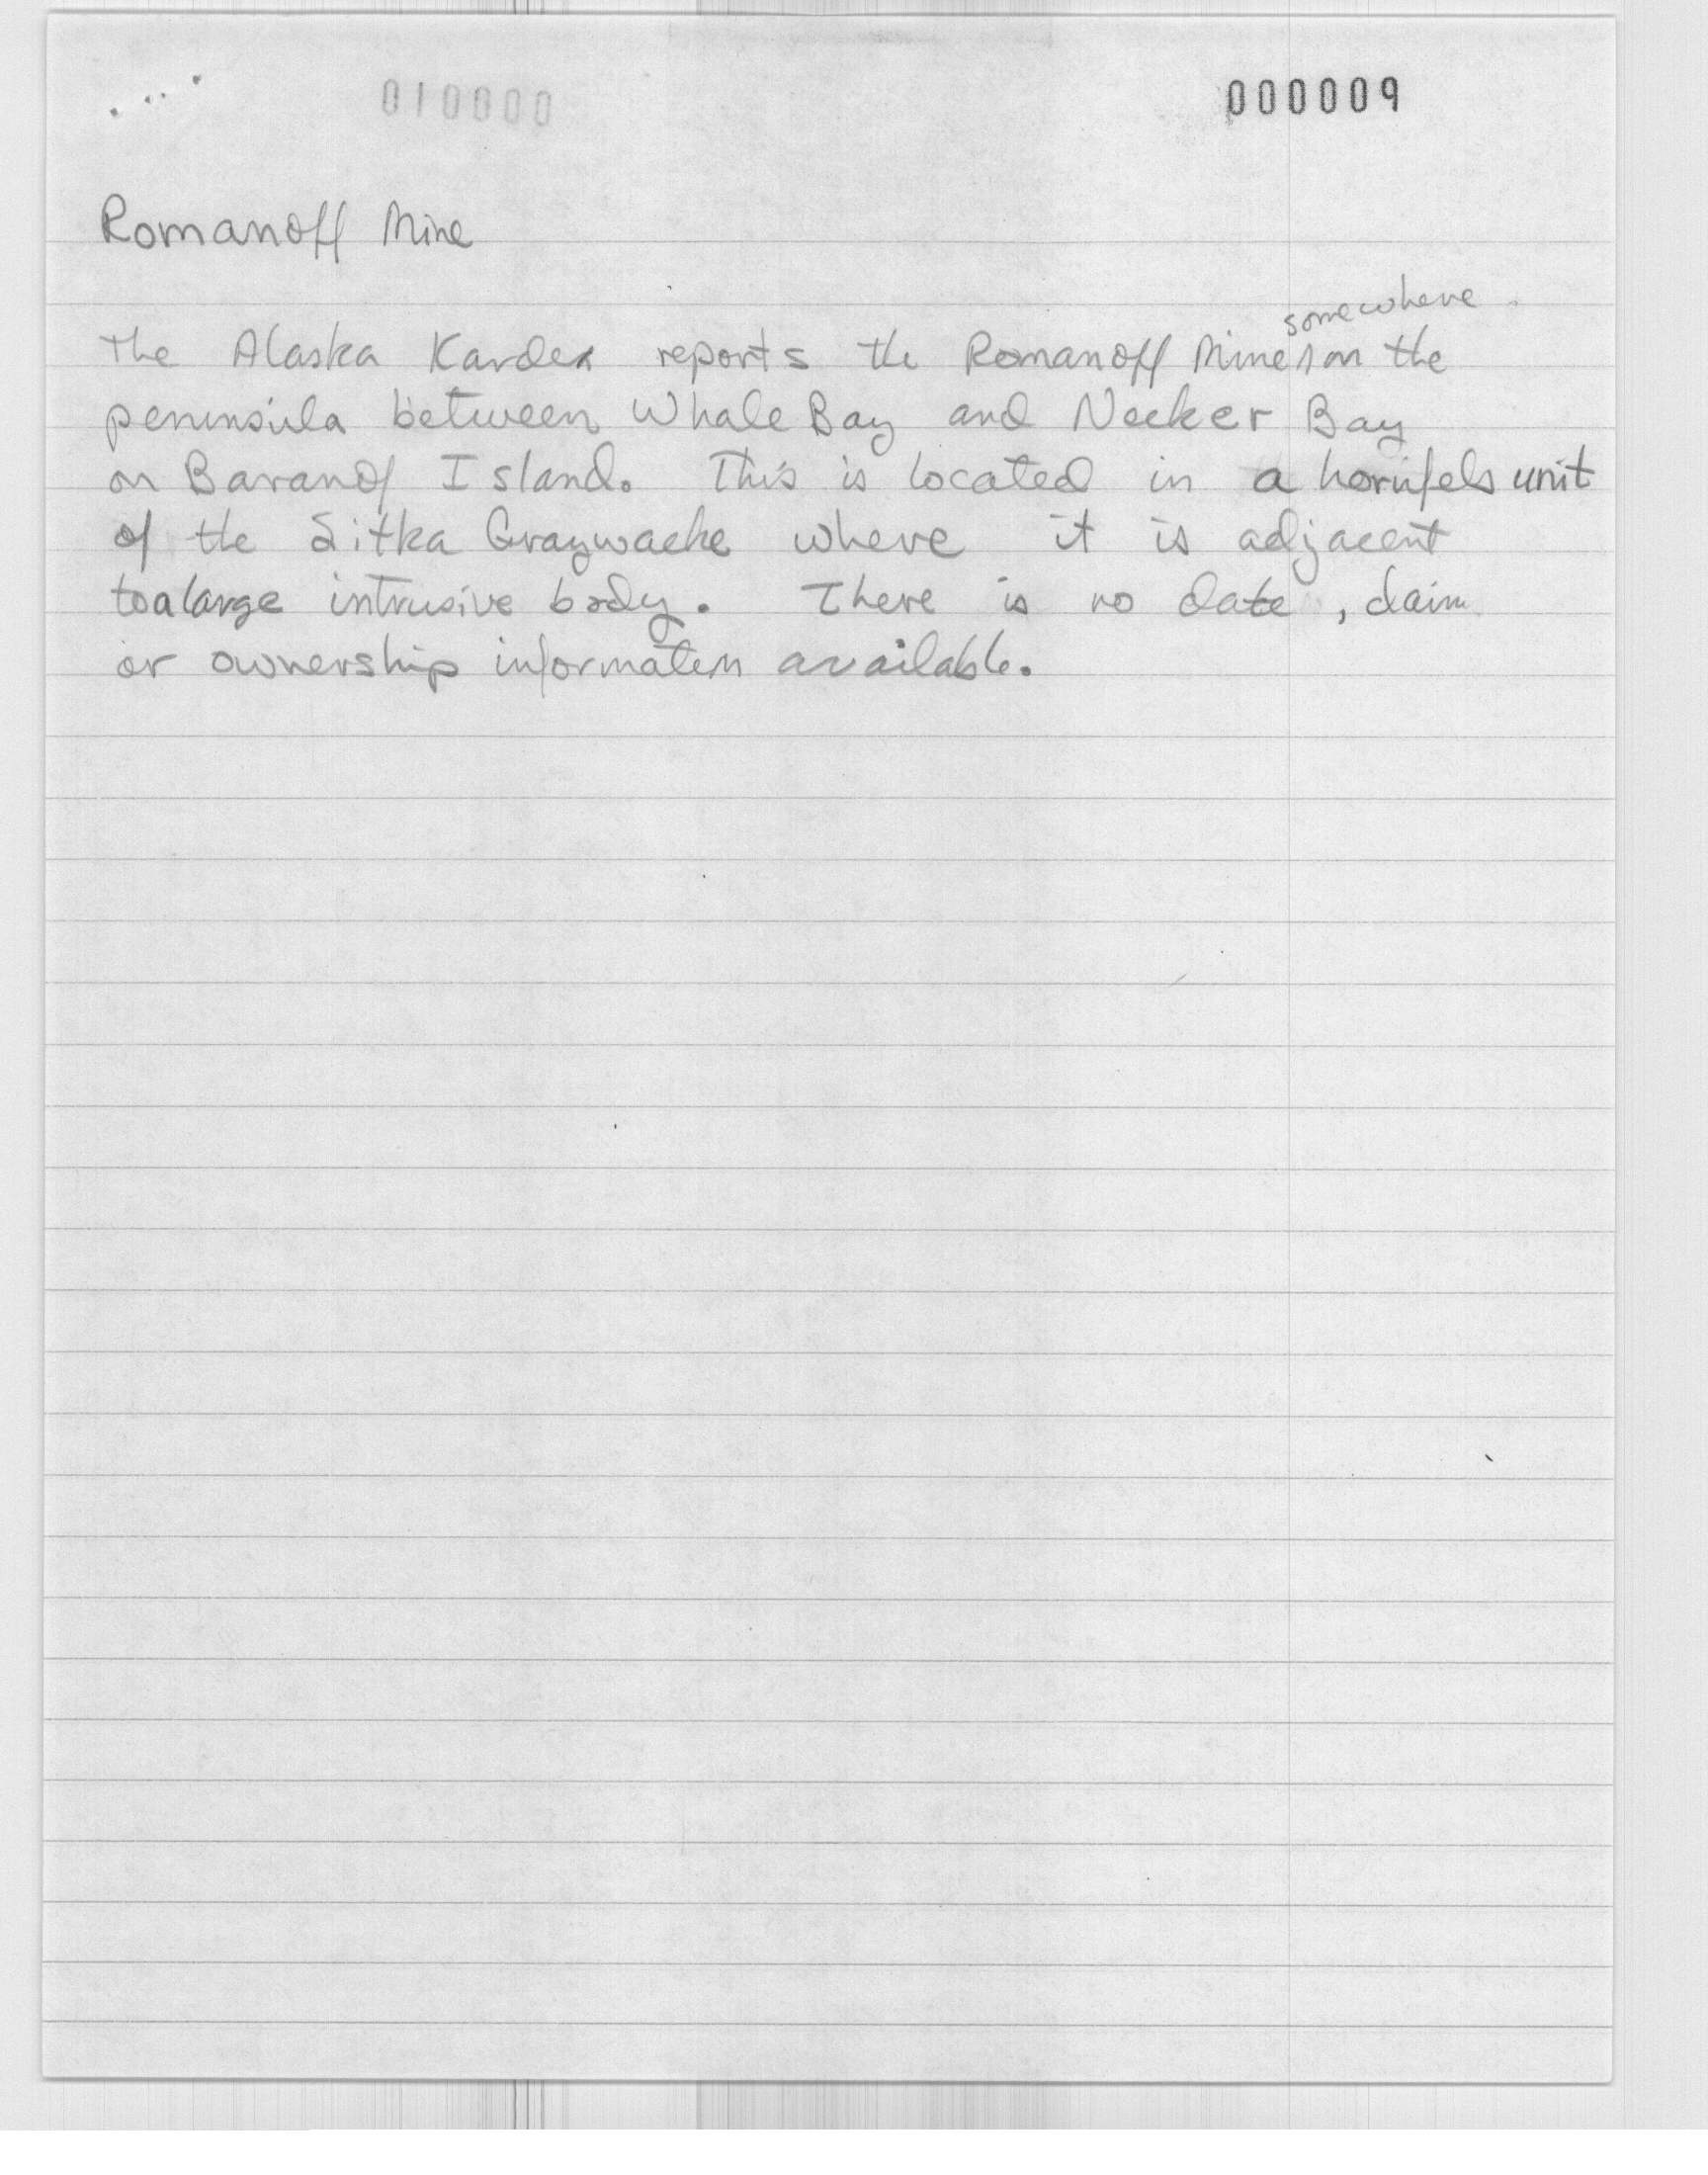 010000 000009
Romanoff Mine
somewhere
The Alaska Kardex reports the Romanoff Mine ^ on the
peninsula between Whale Bay and Necker Bay
on Baranof Island. This is located in a hornfels unit
of the Sitka Graywacke where it is adjacent
to a large intrusive body. There is no date, claim
or ownership information available.